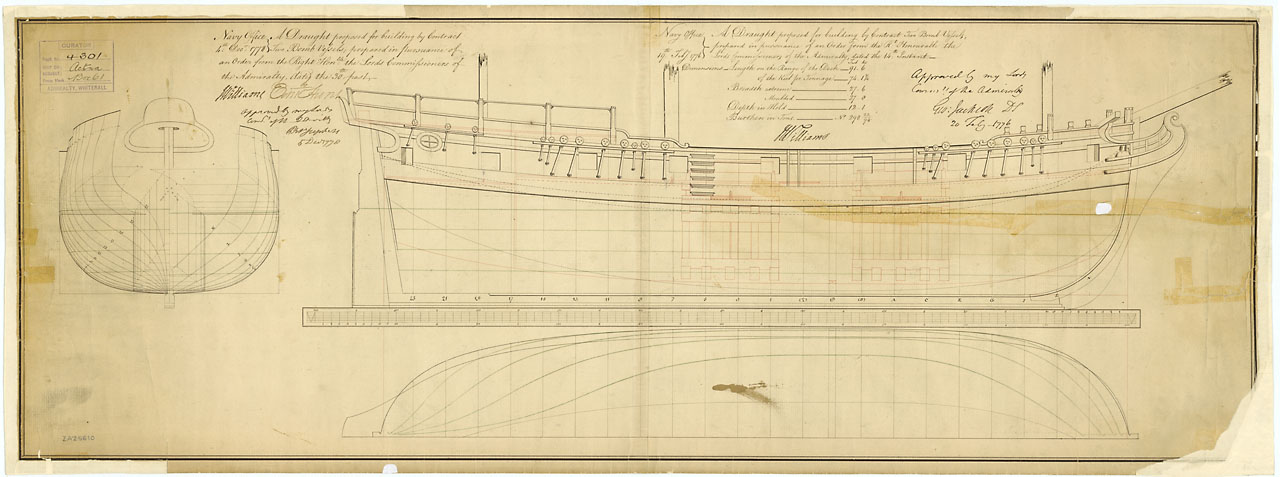 CURATOR
4301
Aetna
Box 61
ADMIRALTY, WHITEHALL
Navy Office A Draught proposed for building by Contract
4th Decr 1778 Two Bomb Vessels, prepared in pursuance of
an Order from the Right Honble the Lords Commissioners of
the Admiralty, dated the 30th past,
JWilliams Edmd Hunt
Approved by my Lords
8 Dec 1778
Navy Office A Draught proposed for building by Contract Two Bomb Vessels,
19th Feby 1776 prepared in pursuance of an Order from the Rt Honourable the
Lords Commissioners of the Admiralty, dated the 14th Instant
Dimensions Length on the Range of the Deck 91. 6
of the Keel for Tonnage 74. 1
Breadth extreme 27. 6
Moulded 27. 0
Depth in Hold 12. 1
Burthen in Tons No 298
JWilliams
Approved by my Lords
Commrs of the Admiralty
Go: Jackson DS
20 Feby 1776
ZAZ5610